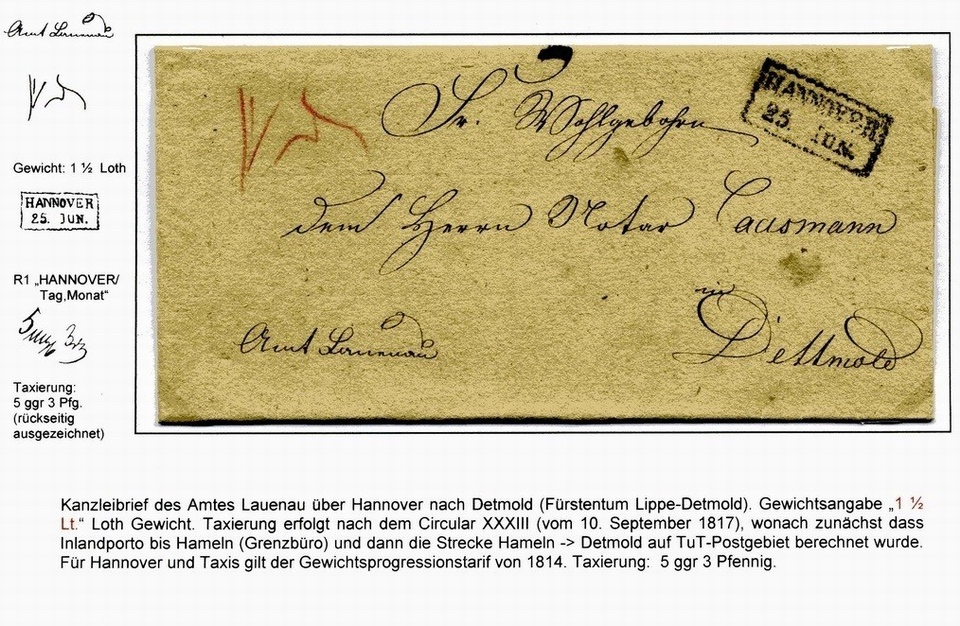 Amt Lauenau
Gewicht: 1 ½ Loth
HANNOVER
25. JUN.
R1 „HANNOVER/
Tag,Monat“
Taxierung:
5 ggr 3 Pfg.
(rückseitig
ausgezeichnet)
HANNOVER
25. JUN.
Sr. Wohlgebohrn
dem Herrn Notar Causmann
in
Dettmold
Amt Lauenau
Kanzleibrief des Amtes Lauenau über Hannover nach Detmold (Fürstentum Lippe-Detmold). Gewichtsangabe „1 ½
Lt.“ Loth Gewicht. Taxierung erfolgt nach dem Circular XXXIII (vom 10. September 1817), wonach zunächst dass
Inlandporto bis Hameln (Grenzbüro) und dann die Strecke Hameln -> Detmold auf TuT-Postgebiet berechnet wurde.
Für Hannover und Taxis gilt der Gewichtsprogressionstarif von 1814. Taxierung: 5 ggr 3 Pfennig.